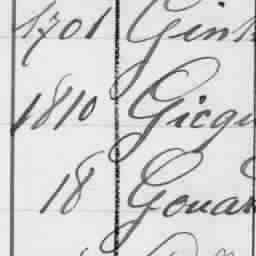 1701 Gin
1810 Gicqu
18 Gouar